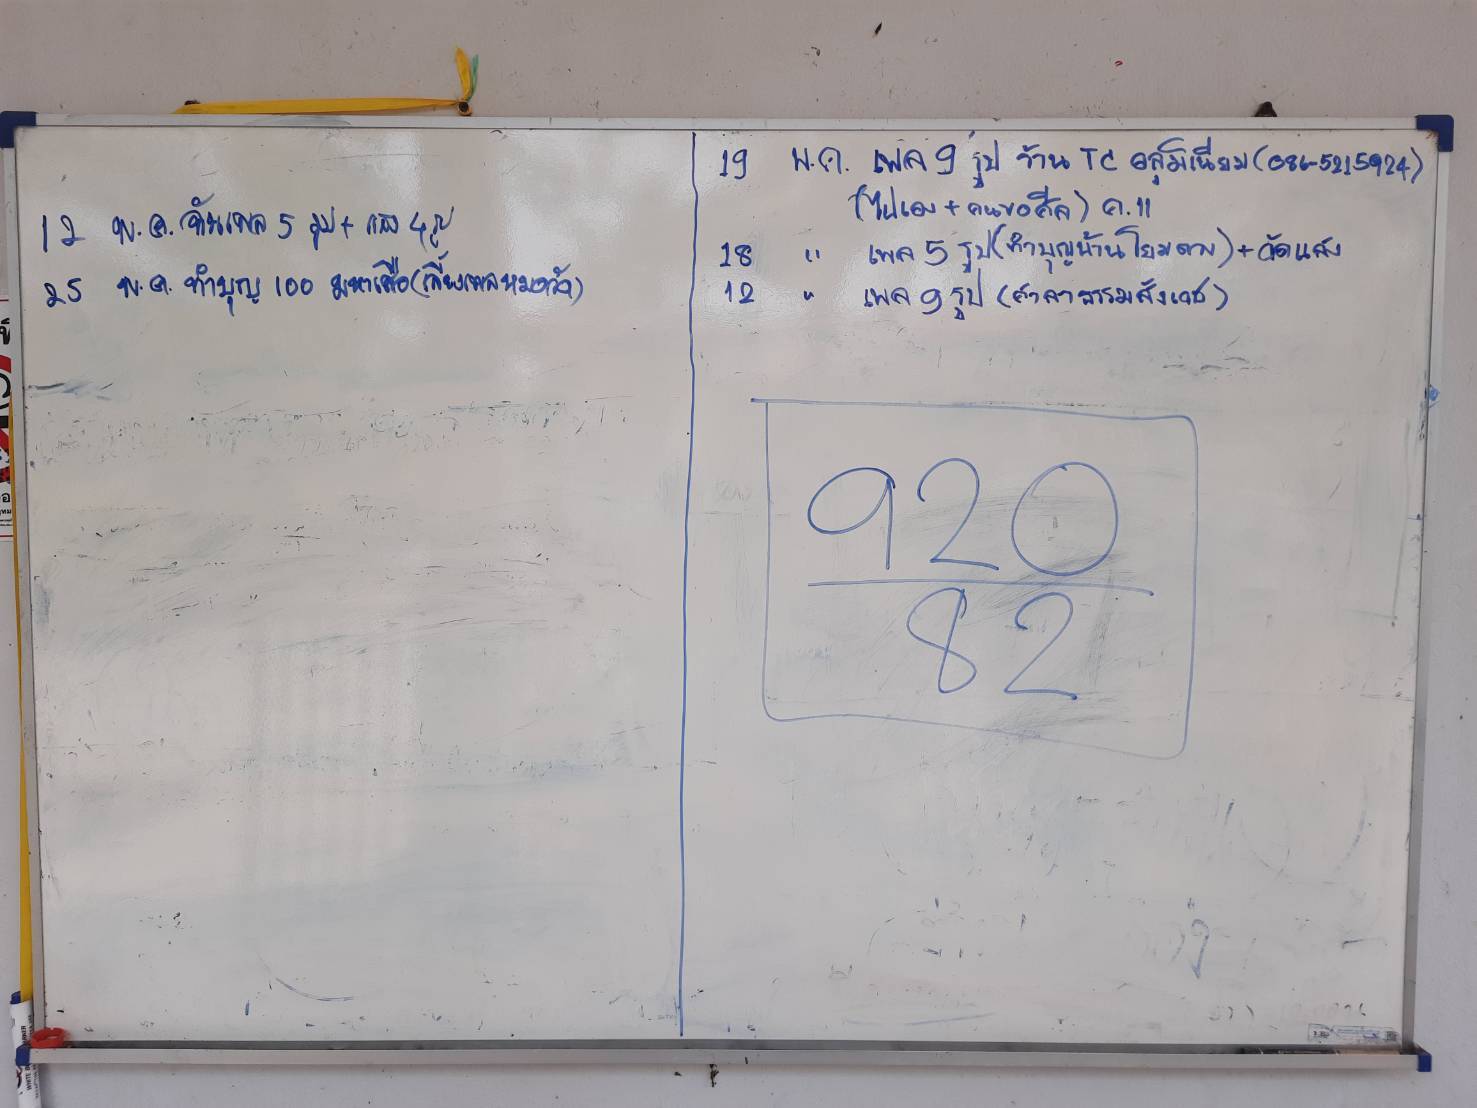 12 พ.ค. ฉันเพล 5 รูป + 4 รูป
25 พ.ค. ทำบุญ 100 (เลี้ยงเพลหมดวัด)
19 พ.ค. เพล 9 รูป ร้าน TC อลูมิเนียม (086-5215924)
(ไปเอง + คนขอศีล) ศ.11
18 " เพล 5 รูป (ทำบุญบ้านโยม) +
12 " เพล 9 รูป (ศาลาธรรมสังเวช)
920
82